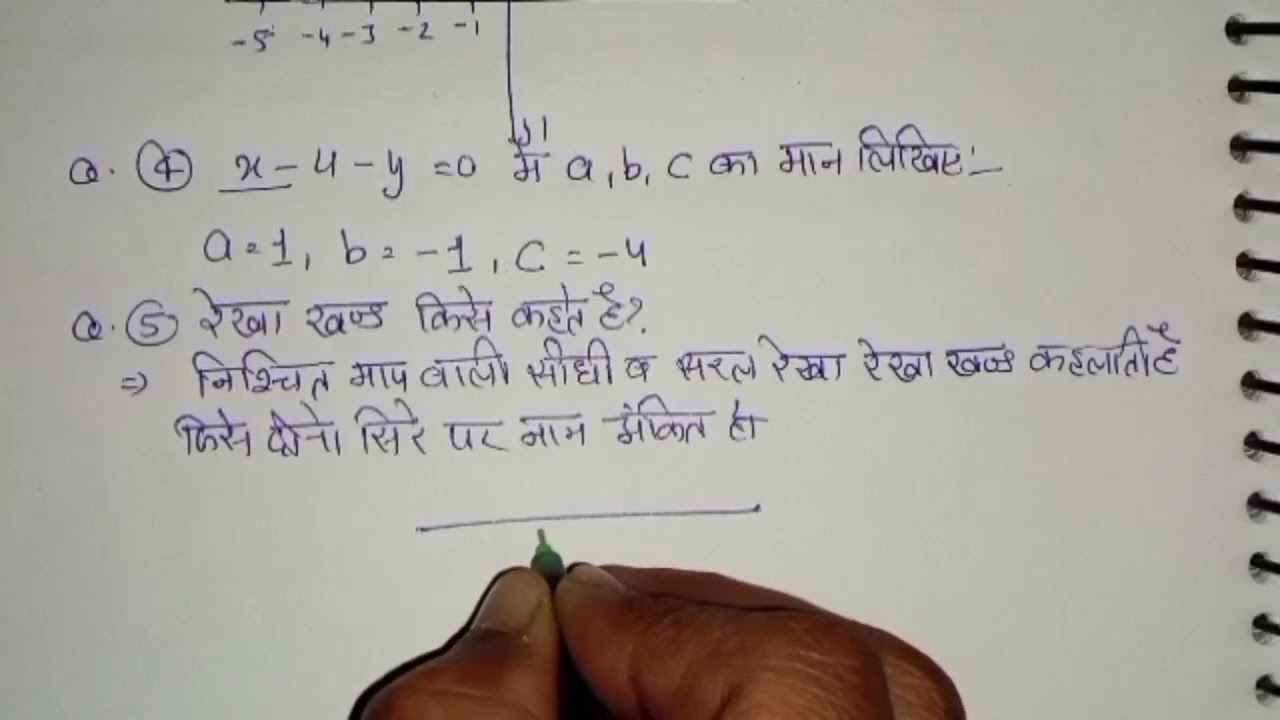 -5 -4 -3 -2 -1
y1
Q. 4 x - 4 - y = 0 में a, b, c का मान लिखिए:-
a = 1, b = -1, c = -4
Q. 5 रेखा खण्ड किसे कहते है?
⇒ निश्चित माप वाली सीधी व सरल रेखा रेखा खण्ड कहलाती है
जिसे दोनो सिरे पर नाम अंकित हो